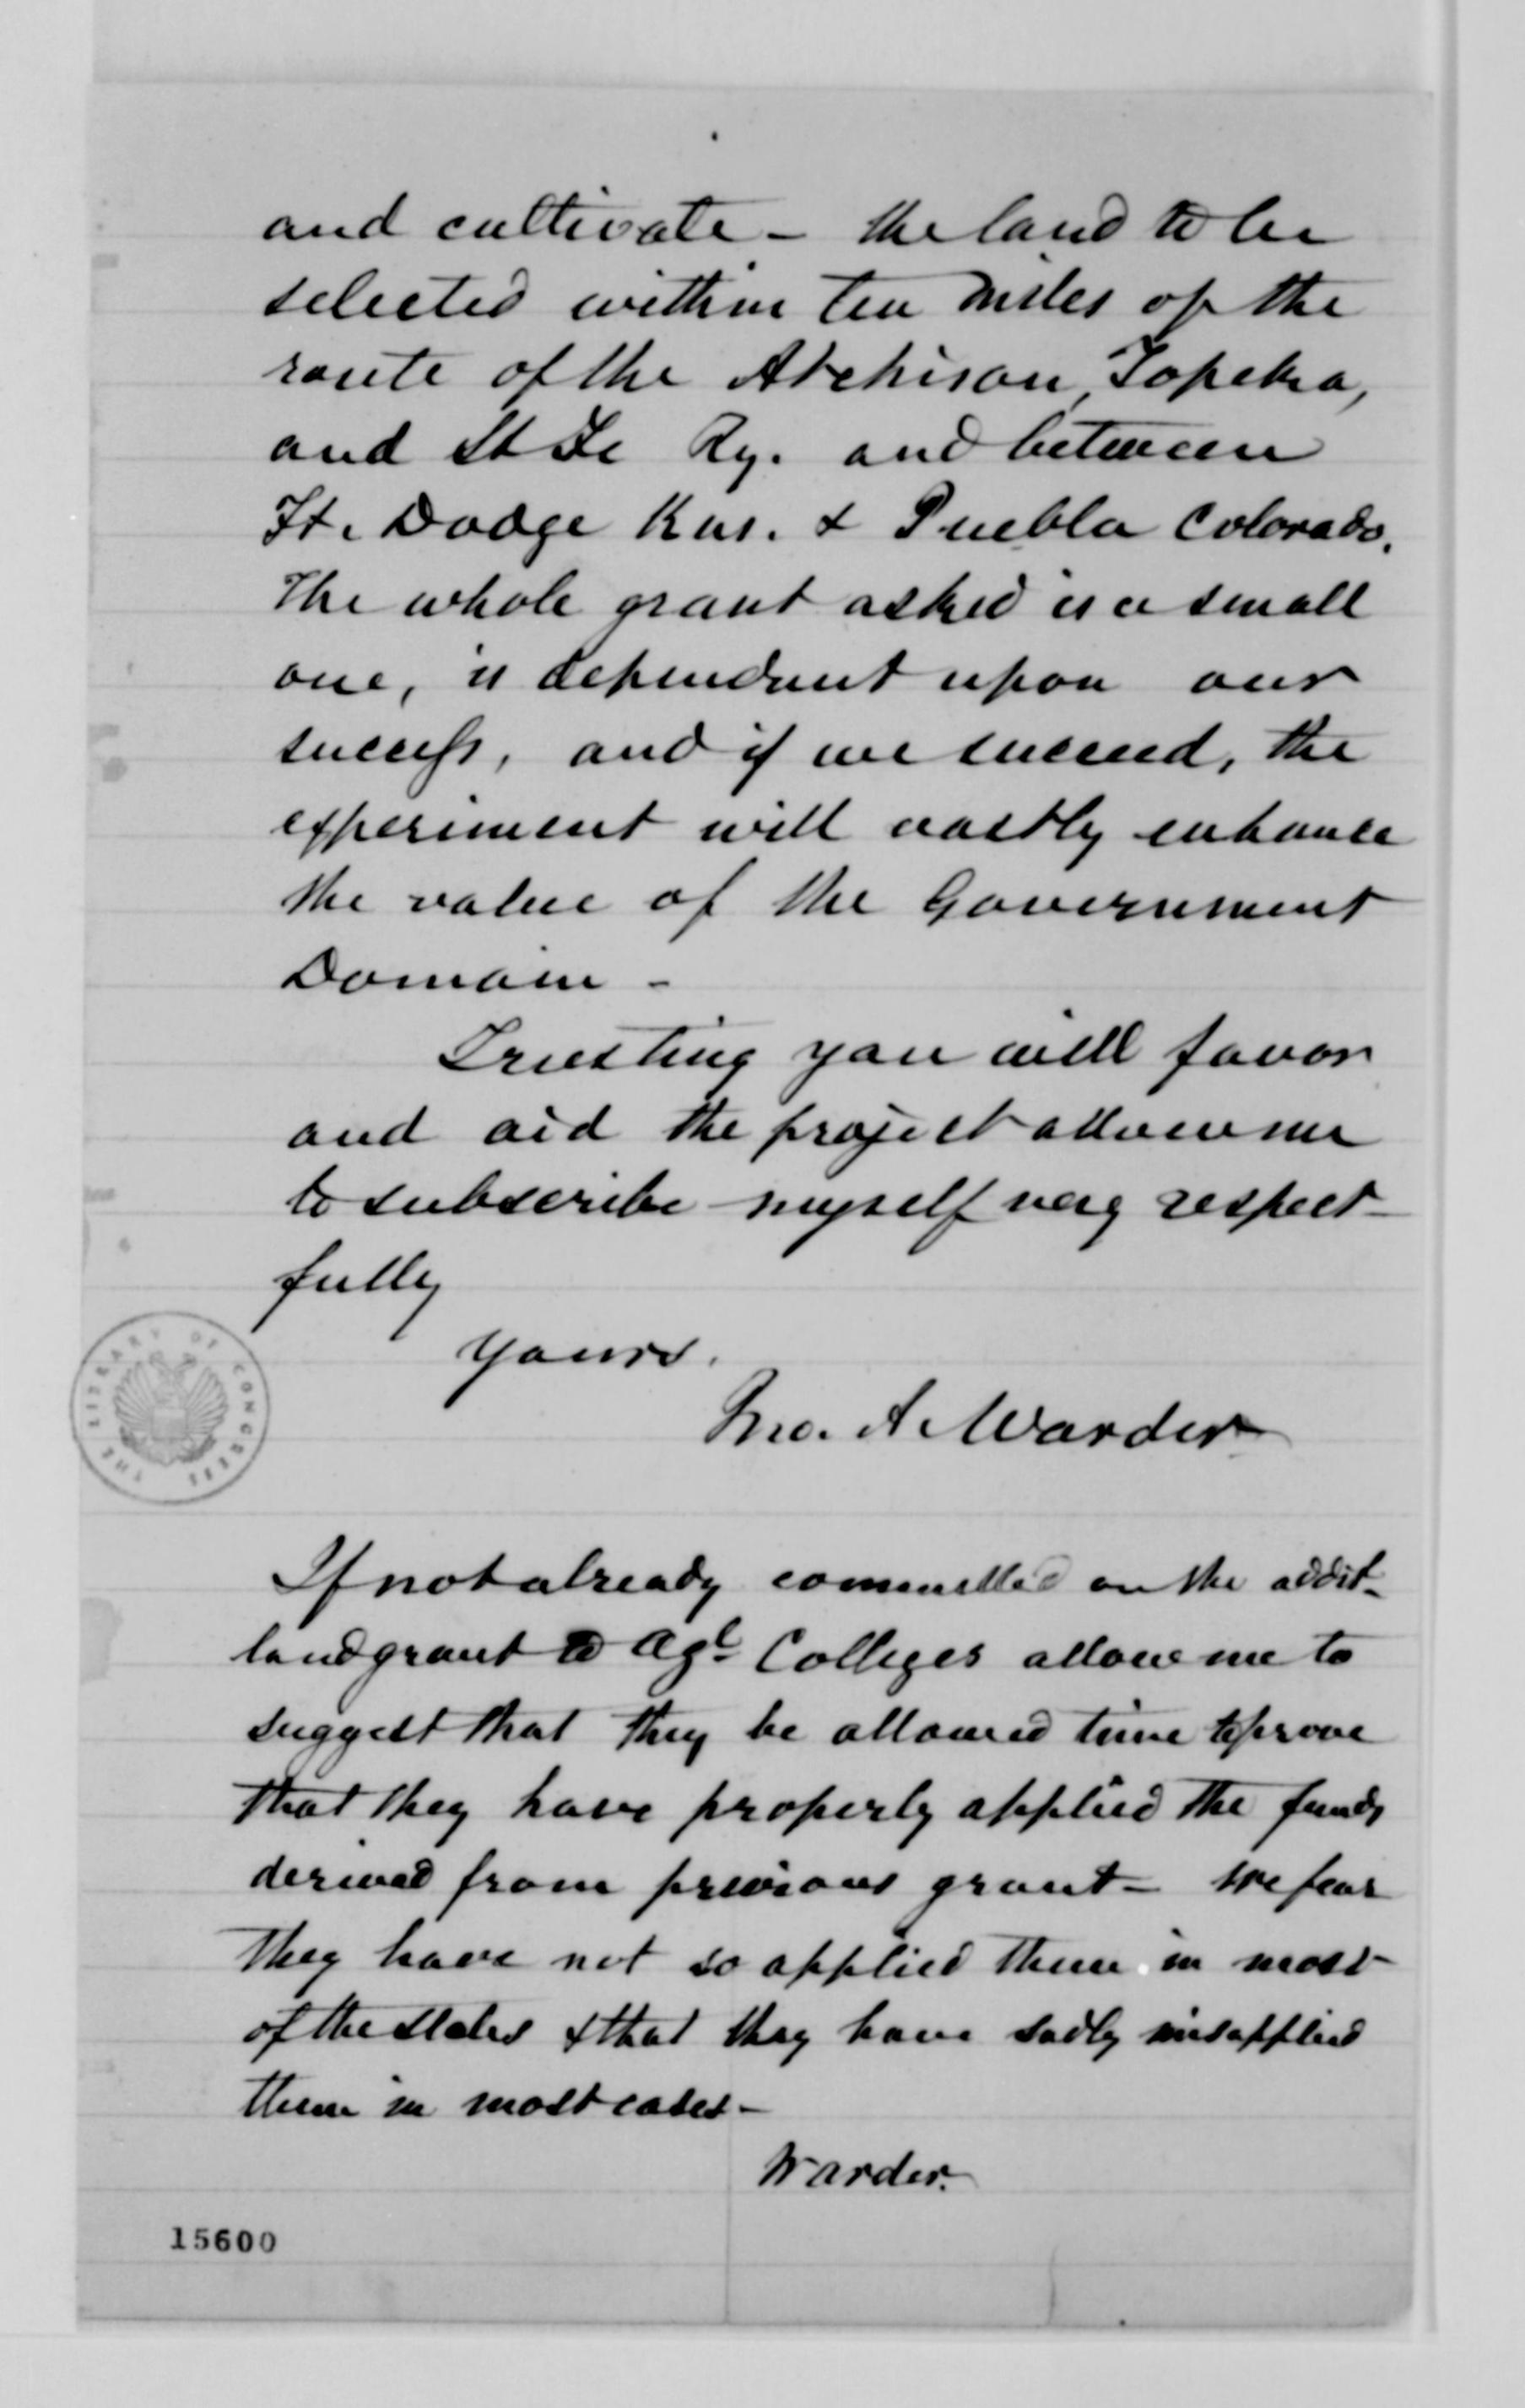 and cultivate - the land to be
selected within ten miles of the
route of the Atchison, Topeka,
and St Fe Ry. and between
Ft. Dodge Kas. & Puebla Colorado.
The whole grant asked is a small
one, is dependant upon our
success, and if we succeed, the
experiment will vastly enhance
the value of the Government
Domain -
Trusting you will favor
and aid the project allow me
to subscribe myself very respect-
fully
yours.
Jno. A. Warder
THE LIBRARY OF CONGRESS
If not already committed on the addit-
land grant to Agl Colleges allow me to
suggest that they be allowed time to prove
that they have properly applied the funds
derived from previous grant - We fear
they have not so applied them in most
of the states & that they have sadly misapplied
them in most cases -
Warder.
15600